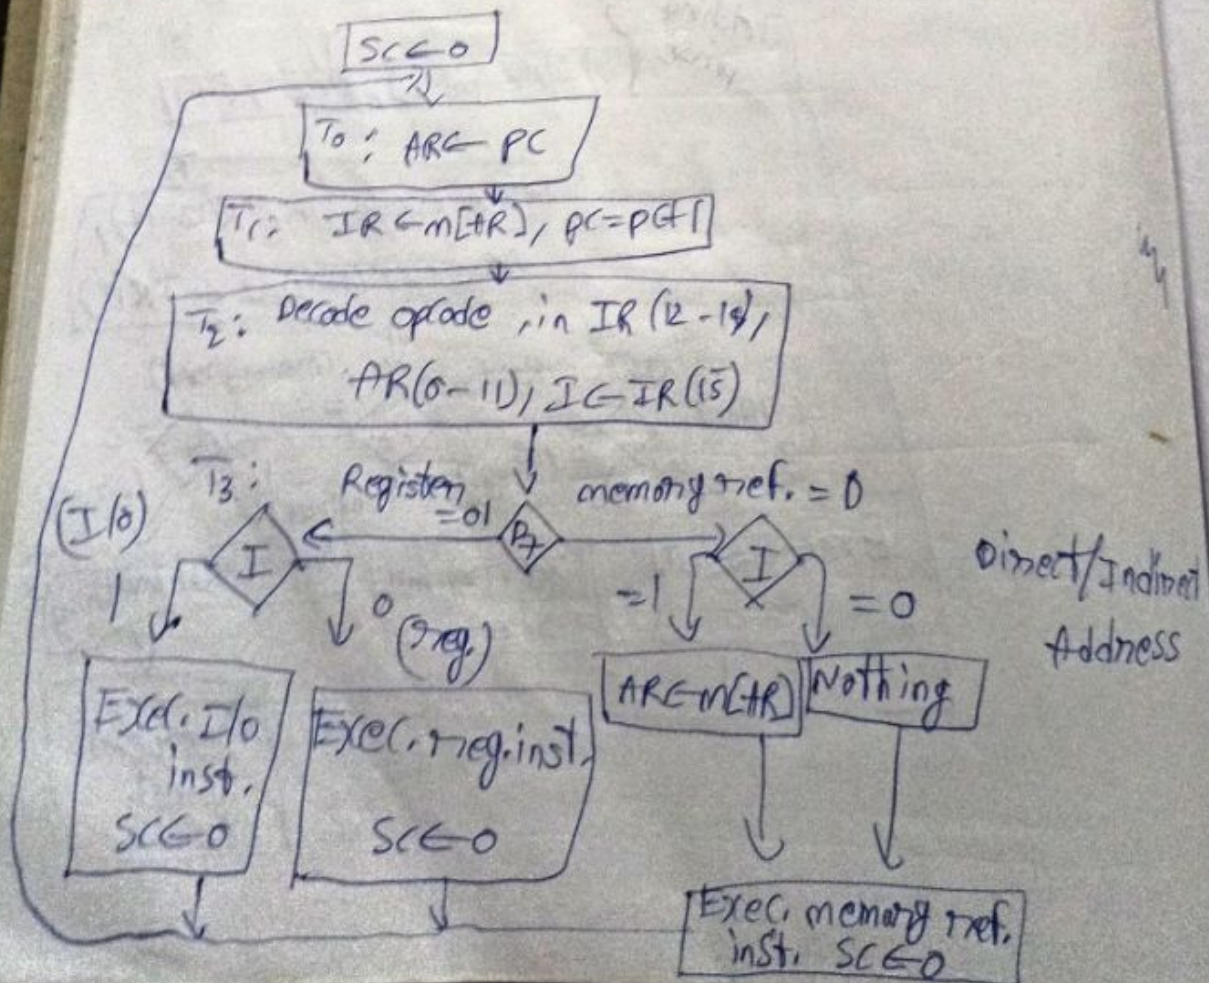 SC ← 0
T0: AR ← PC
T1: IR ← M[AR], PC = PC+1
T2: Decode opcode, in IR (12-14),
AR(0-11), I ← IR(15)
T3:
Register = 1
memory ref. = 0
(I/0)
I
D7
I
Direct/Indirect
Address
1
0
(reg.)
=1
=0
Exec. I/0
inst.
SC ← 0
Exec. reg. inst.
SC ← 0
AR ← M[AR]
Nothing
Exec. memory ref.
inst. SC ← 0